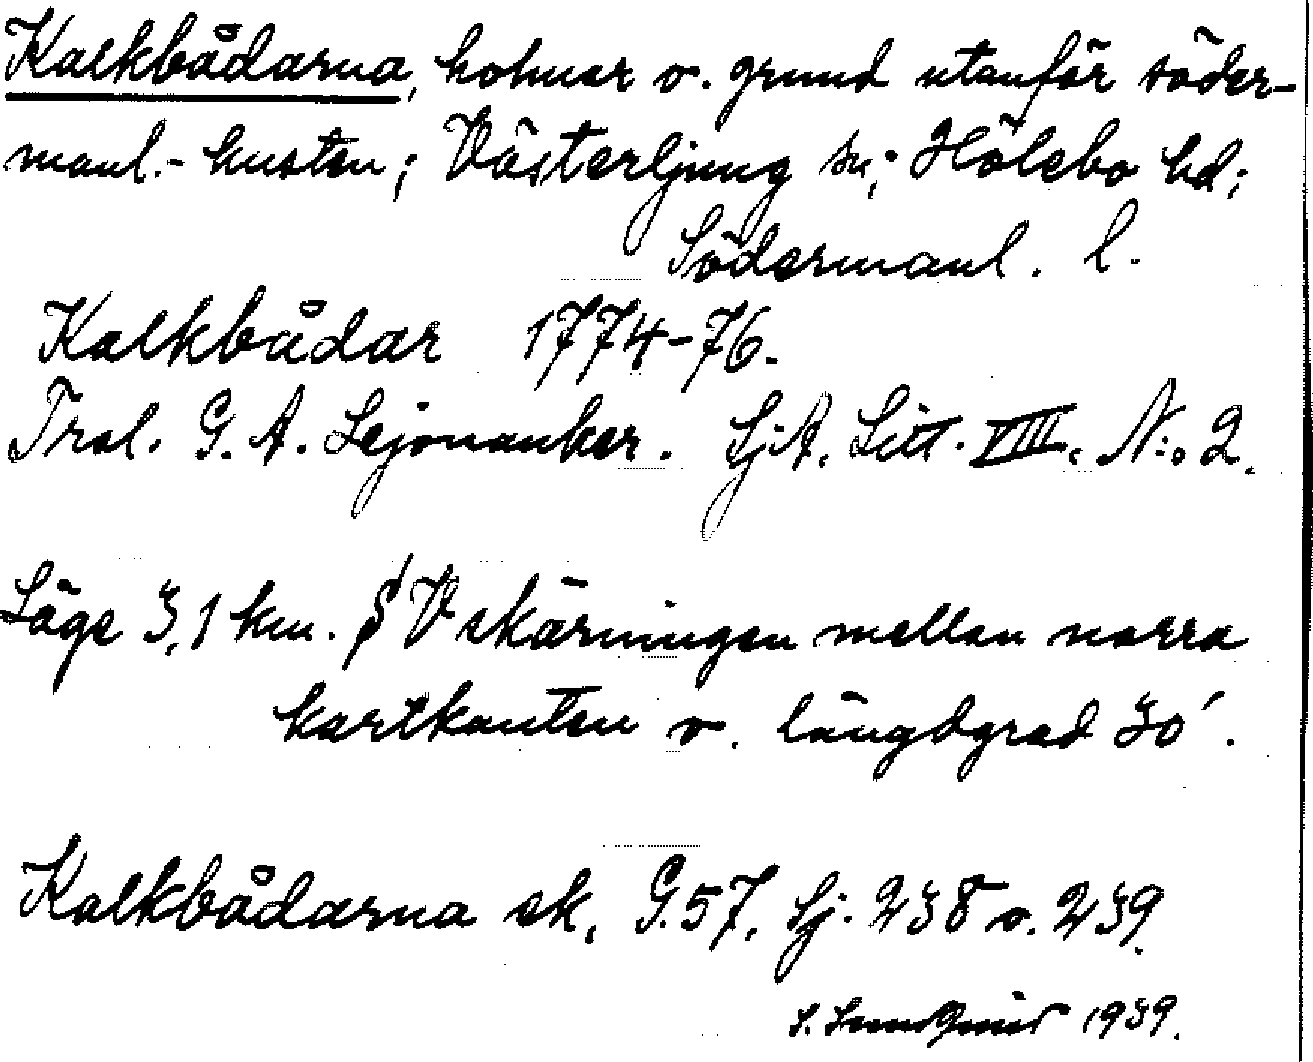 Kalkbådarna, holmar o. grund utanför söder-
manl.-kusten; Västerljung sn; Hölebo hd;
Södermanl. l.
Kalkbådar 1774-76.
Trol. G. A. Lejonanker. SjA. Litt. VIII. N:o 2.
Läge 3,1 km. S V skärningen mellan norra
kartkanten o. längdgrad 30'.
Kalkbådarna sk. G.57. Sj. 238 o. 239.
1939.